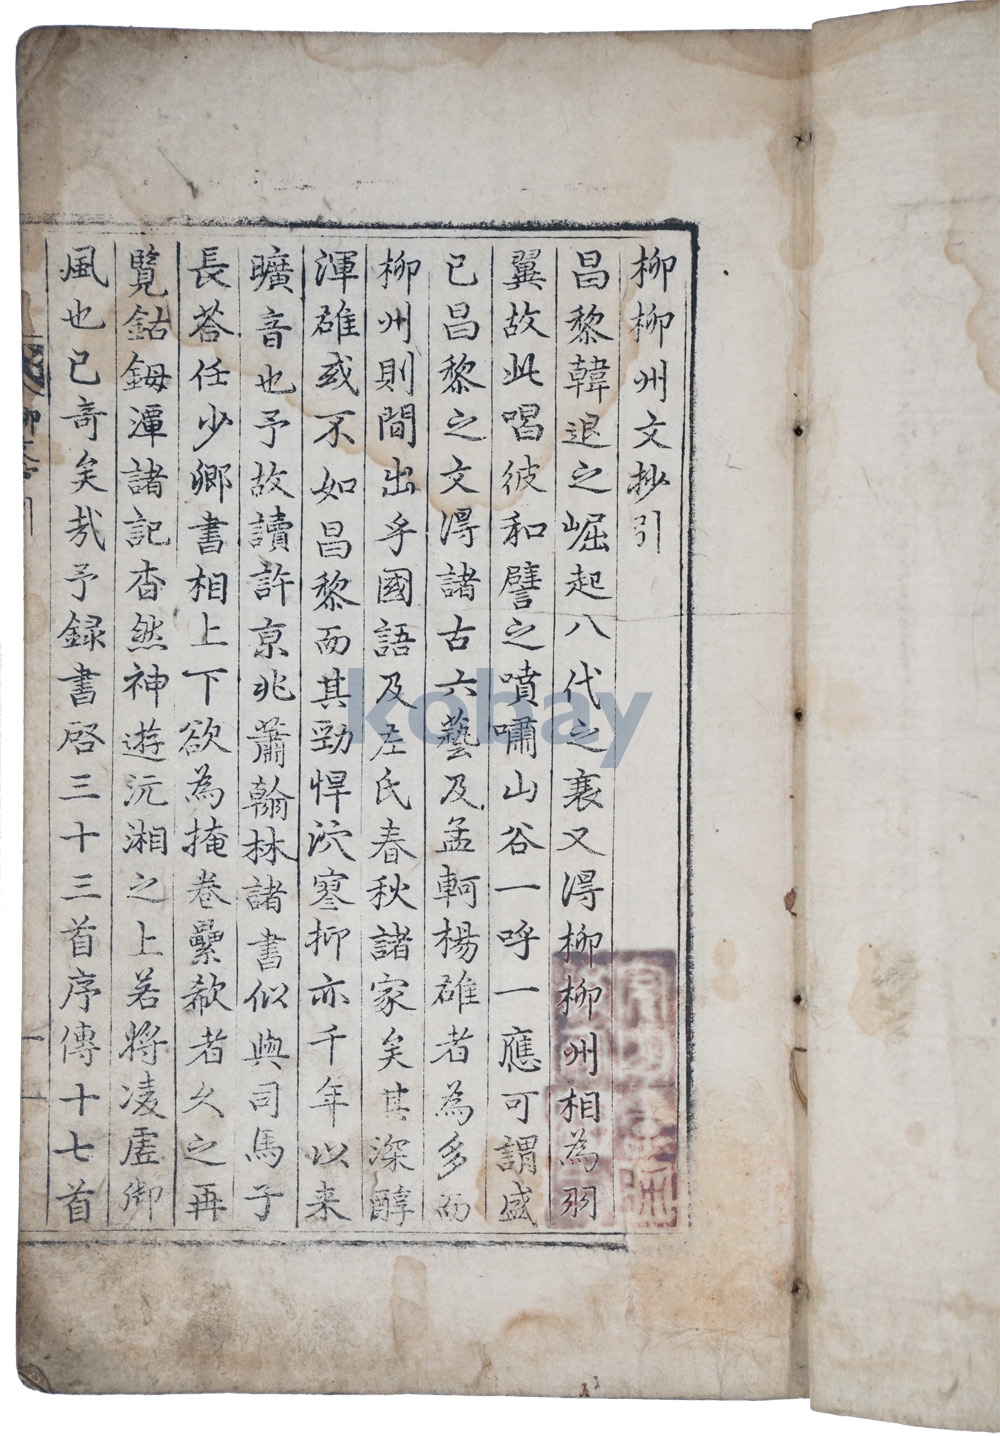 柳柳州文抄引
昌黎韓退之崛起八代之衰又得柳柳州相為羽
翼故此唱彼和譬之噴嘯山谷一呼一應可謂盛
已昌黎之文得諸古六藝及孟軻楊雄者為多而
柳州則間出乎國語及左氏春秋諸家矣其深醇
渾雄或不如昌黎而其勁悍泬寥抑亦千年以来
曠音也予故讀許京兆蕭翰林諸書似與司馬子
長荅任少卿書相上下欲為掩卷纍欷者久之再
覽鈷鉧潭諸記杳然神遊沅湘之上若將凌虛御
風也已奇矣哉予録書啓三十三首序傳十七首
kobay